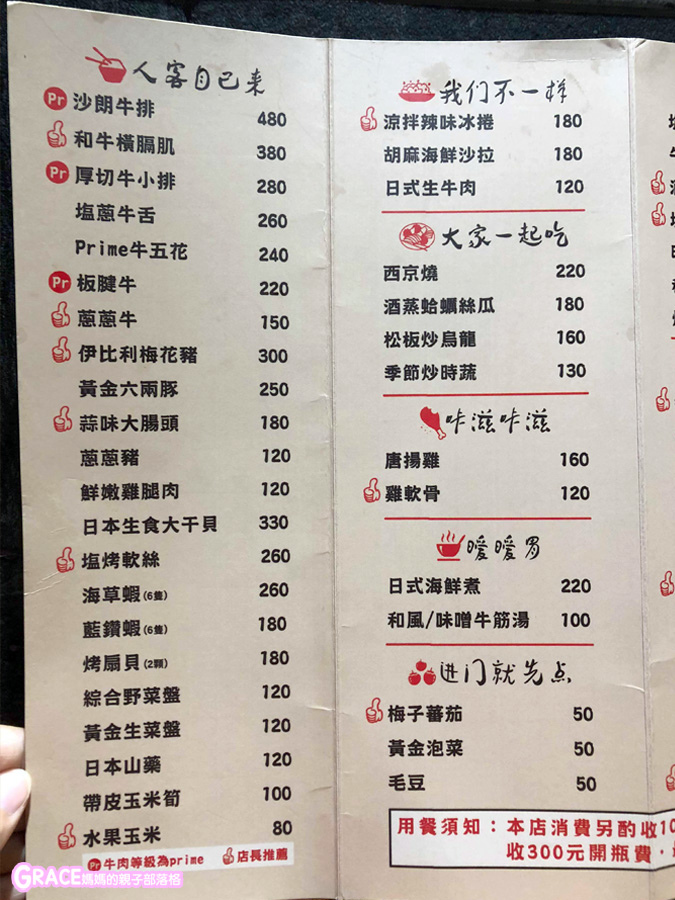 人客自己来
Pr 沙朗牛排 480
和牛橫膈肌 380
Pr 厚切牛小排 280
塩蔥牛舌 260
Prime牛五花 240
Pr 板腱牛 220
蔥蔥牛 150
伊比利梅花豬 300
黃金六兩豚 250
蒜味大腸頭 180
蔥蔥豬 120
鮮嫩雞腿肉 120
日本生食大干貝 330
塩烤軟絲 260
海草蝦(6隻) 260
藍鑽蝦(6隻) 180
烤扇貝(2顆) 180
綜合野菜盤 120
黃金生菜盤 120
日本山藥 120
帶皮玉米筍 100
水果玉米 80
Pr 牛肉等級為prime 店長推薦
我们不一样
涼拌辣味冰捲 180
胡麻海鮮沙拉 180
日式生牛肉 120
大家一起吃
西京燒 220
酒蒸蛤蠣絲瓜 180
松板炒烏龍 160
季節炒時蔬 130
咔滋咔滋
唐揚雞 160
雞軟骨 120
暖暖胃
日式海鮮煮 220
和風/味噌牛筋湯 100
进门就先点
梅子蕃茄 50
黃金泡菜 50
毛豆 50
用餐須知：本店消費另酌收10
收300元開瓶費．
GRACE媽媽的親子部落格